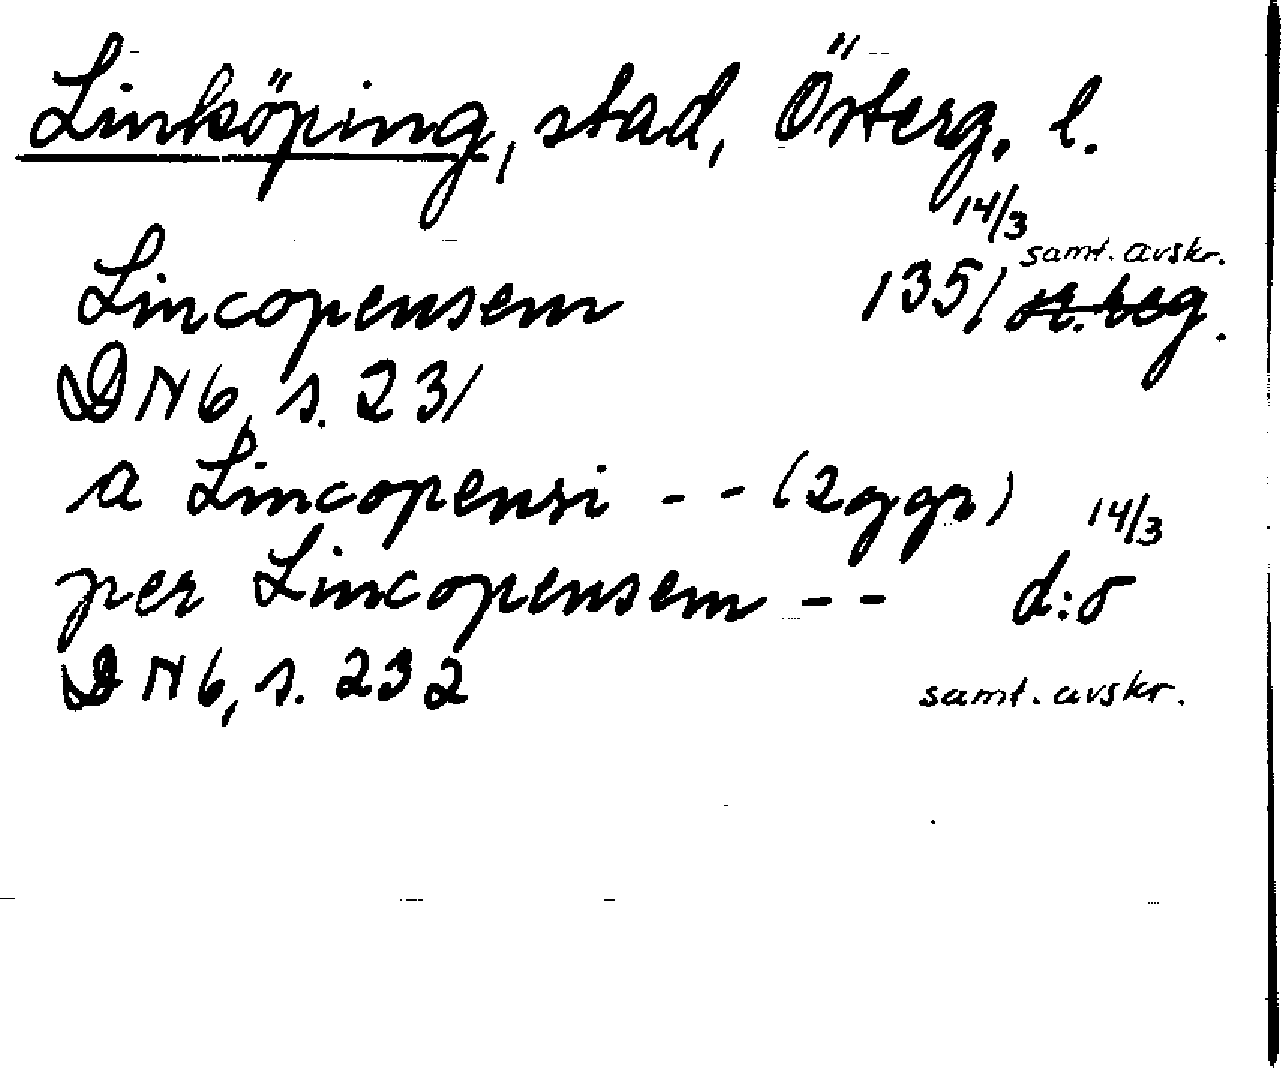 Linköping, stad, Österg. l.
14/3
samt. avskr.
Lincopensem 1351
DN 6, s. 231
a Lincopensi - - (2 ggr) 14/3
per Lincopensem - - d:o
DN 6, s. 232 samt. avskr.